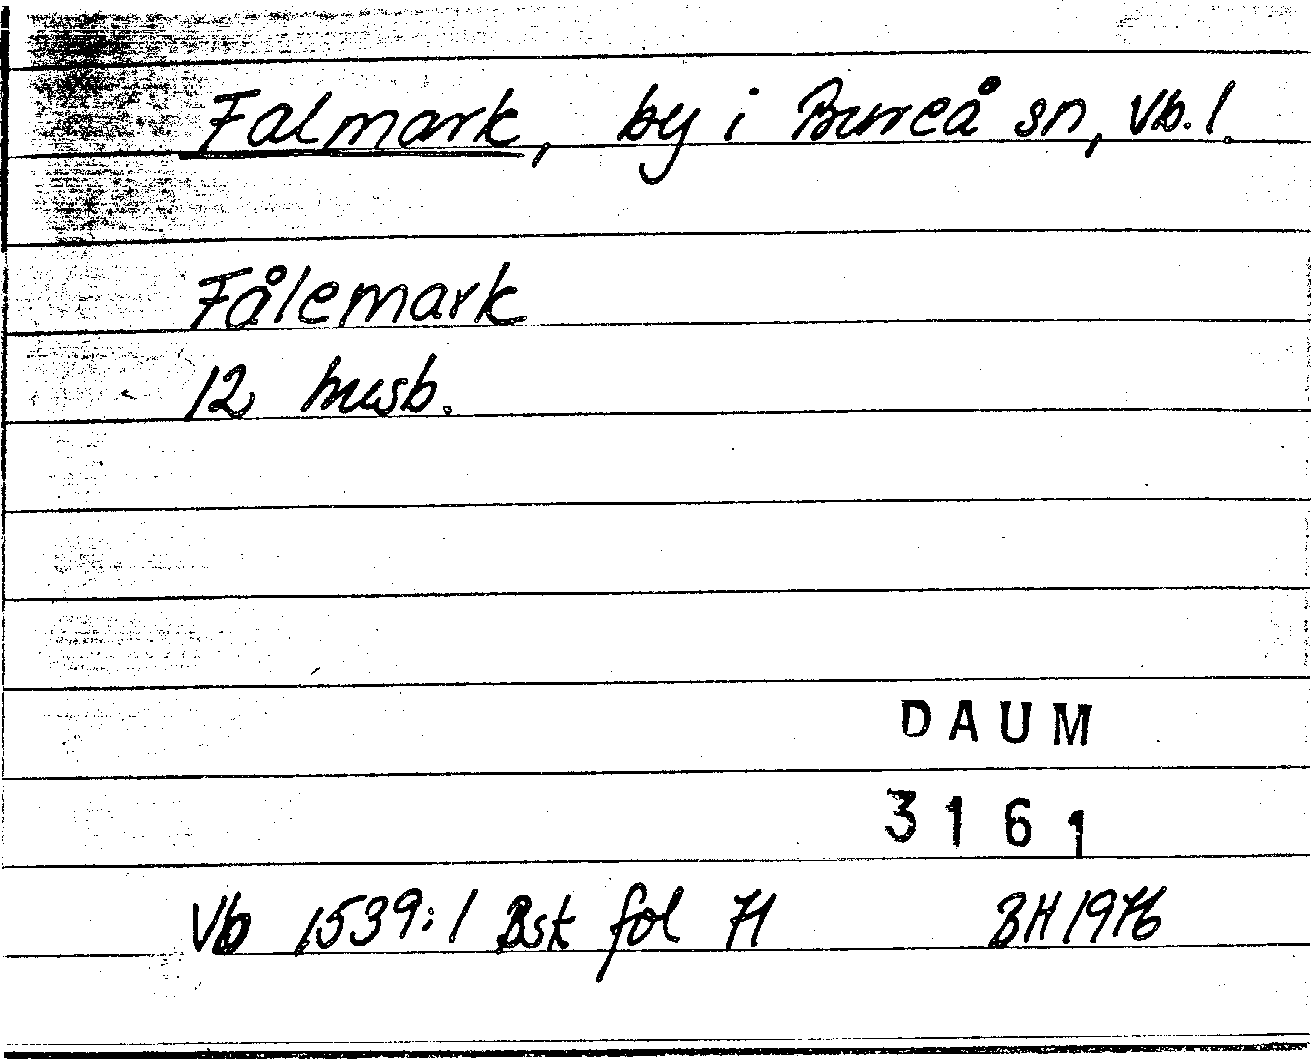 Falmark, by i Bureå sn, Vb. l.
Fålemark
12 husb.
DAUM
3161
Vb 1539:1 Bsk fol 71 BH 1976